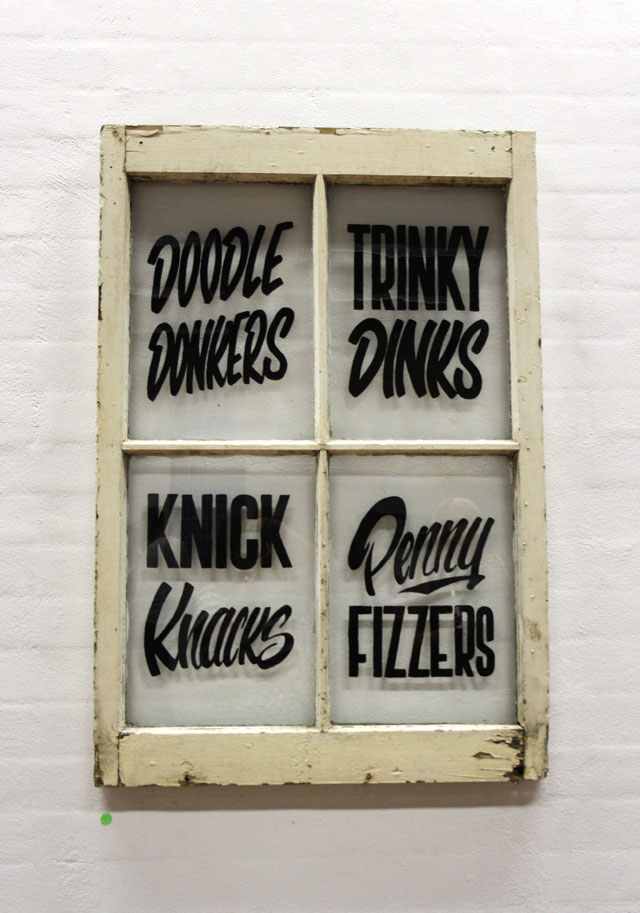 DOODLE
DONKERS
TRINKY
DINKS
KNICK
Knacks
Penny
FIZZERS